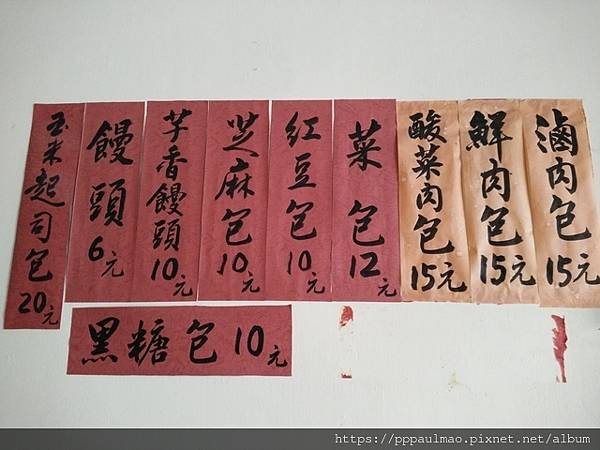 滷肉包15元
鮮肉包15元
酸菜肉包15元
菜包12元
紅豆包10元
芝麻包10元
芋香饅頭10元
饅頭6元
玉米起司包20元
黑糖包10元
https://pppaulmao.pixnet.net/album